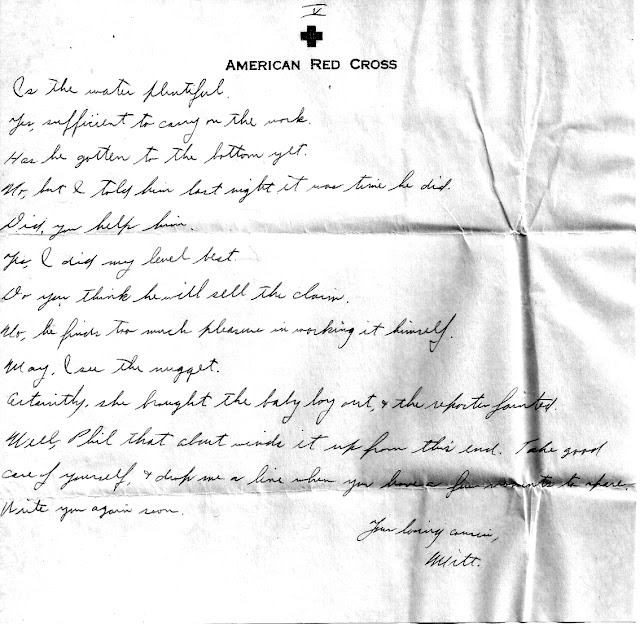 V
AMERICAN RED CROSS
Is the water plentiful.
Yes, sufficient to carry on the work.
Has he gotten to the bottom yet.
No, but I told him last night it was time he did.
Did, you help him.
Yes, I did my level best
Do you think he will sell the claim.
No, he finds too much pleasure in working it himself.
May, I see the nugget.
Certaintly, she brought the baby boy out, & the reporter fainted.
Well, Phil that about winds it up from this end. Take good
care of yourself, & drop me a line when you have a few moments to spare.
Write you again soon.
Your loving cousin,
Milt.